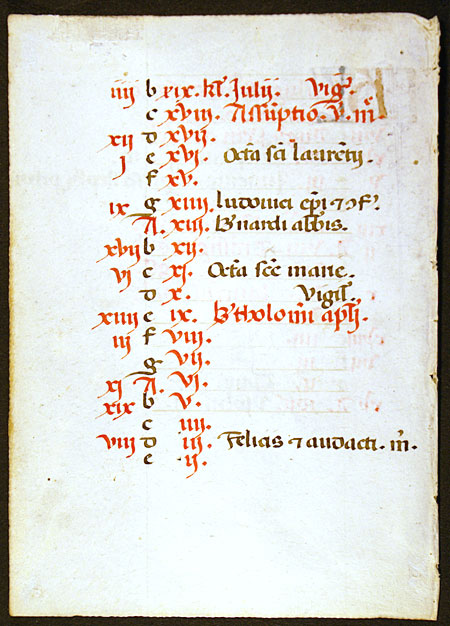 iiij b xix. kł Julii. Vigᵉ.
c xviii. Assũptio. V. m̃
xii d xvii.
j e xvi. Octa sci laurẽtij.
f xv.
ix g xiiii. ludovici ep̃i ⁊ ꝯf.
A. xiii. B'nardi abb̃is.
xvii b xii.
vi c xi. Octa scẽ marie.
d x. Vigił.
xiiii e ix. B'tholomẽi apłi.
iii f viii.
g vii.
xi A. vi.
xix b v.
c iiii.
viii d iii. Felicis ⁊ audacti. m̃.
e ii.